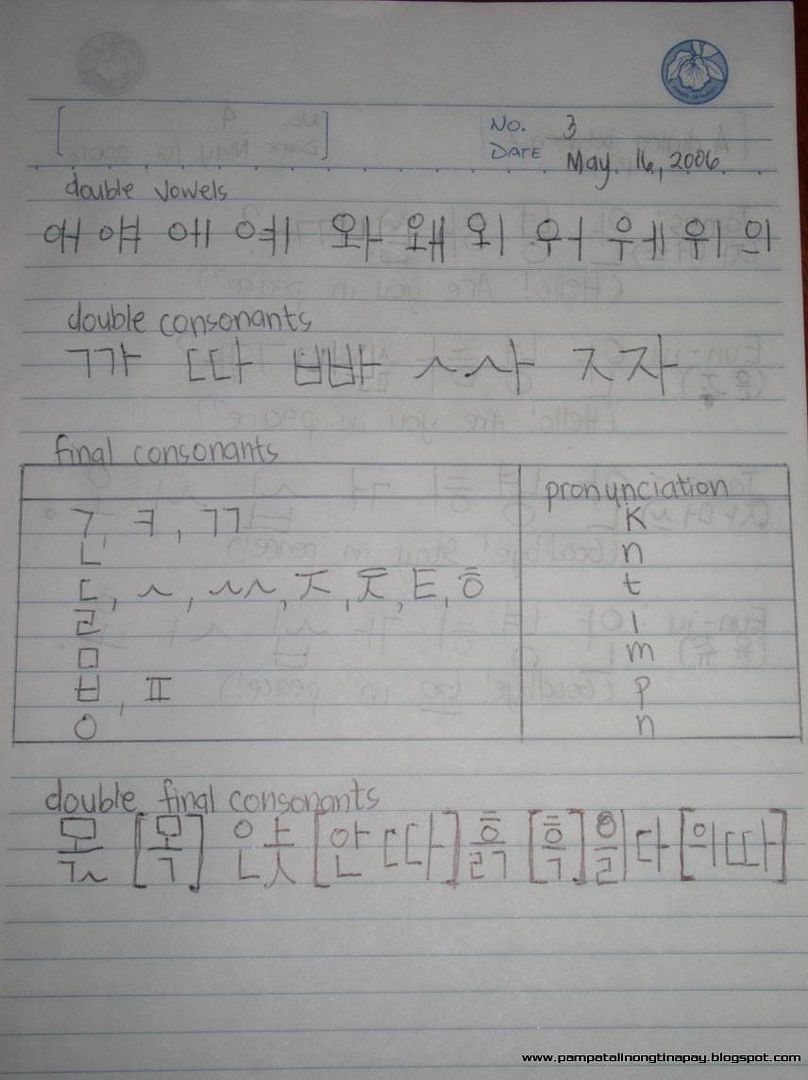 No. 3
DATE May. 16, 2006
double vowels
애 얘 에 예 와 왜 외 워 웨 위 의
double consonants
ㄲ까 ㄸ따 ㅃ빠 ㅆ사 ㅈ자
final consonants
pronunciation
ㄱ, ㅋ, ㄲ K
ㄴ n
ㄷ, ㅅ, ㅆ, ㅈ, ㅊ, ㅌ, ㅎ t
ㄹ l
ㅁ m
ㅂ, ㅍ p
ㅇ n
double final consonants
몫 [목] 앉 [안따] 흙 [흑] 다 [의따]
www.pampatalinongtinapay.blogspot.com